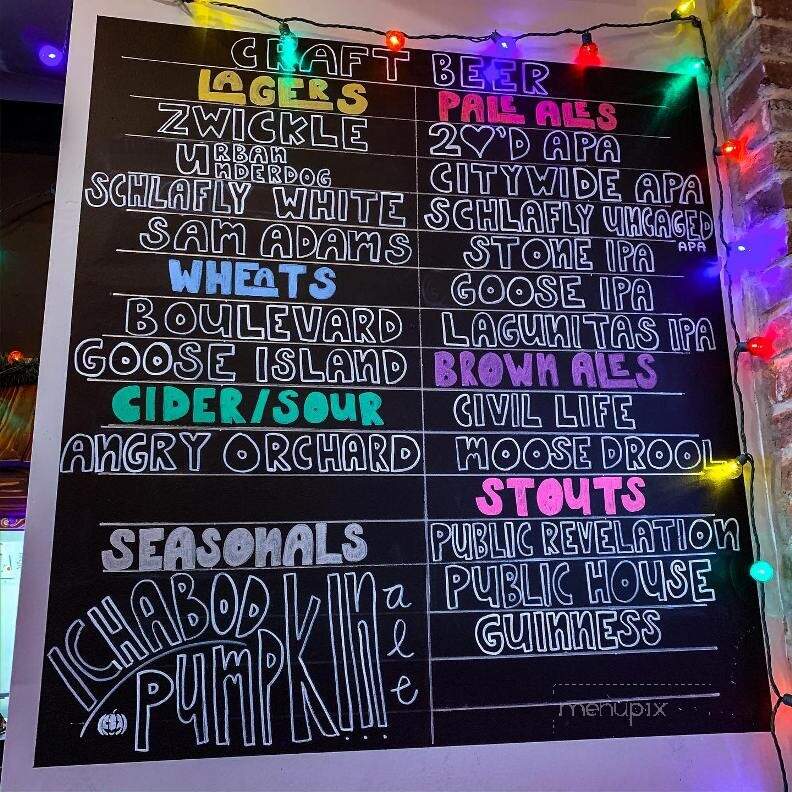 CRAFT BEER
LAGERS
ZWICKLE
URBAN UNDERDOG
SCHLAFLY WHITE
SAM ADAMS
WHEATS
BOULEVARD
GOOSE ISLAND
CIDER/SOUR
ANGRY ORCHARD
SEASONALS
ICHABOD
PUMPKIN ale...
PALE ALES
2♡'D APA
CITYWIDE APA
SCHLAFLY UNCAGED APA
STONE IPA
GOOSE IPA
LAGUNITAS IPA
BROWN ALES
CIVIL LIFE
MOOSE DROOL
STOUTS
PUBLIC REVELATION
PUBLIC HOUSE
GUINNESS
menupix